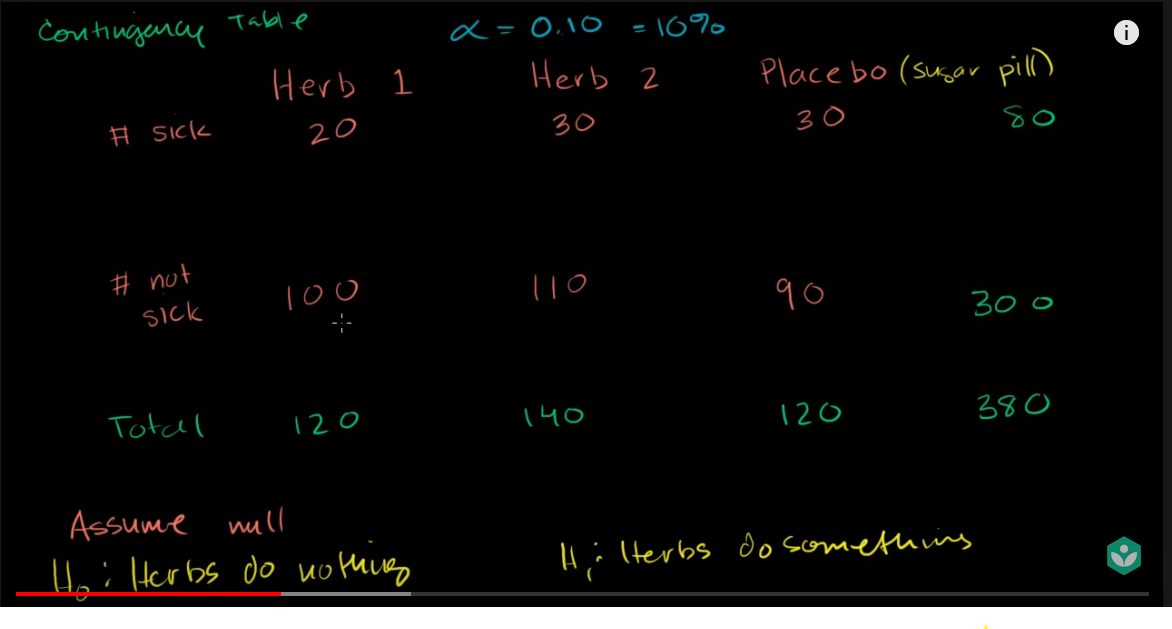 Contingency Table α = 0.10 = 10%
Herb 1 Herb 2 Placebo (sugar pill)
# sick 20 30 30 80
# not sick 100 110 90 300
Total 120 140 120 380
Assume null
H₀: Herbs do nothing H₁: Herbs do something